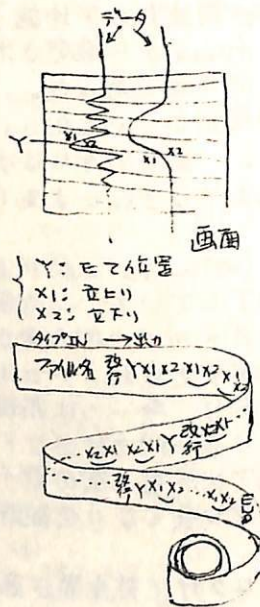 データ
Y X1 X2 X1 X2
画面
Y:たて位置
X1:立上り
X2:立下り
タイプIN →出力
ファイル名 改行 Y X1 X2 X1 X2 X1 X2
X2 X1 X2 X1 Y 改行 X2 X1
改行 Y X1 X2 X1 X2 END